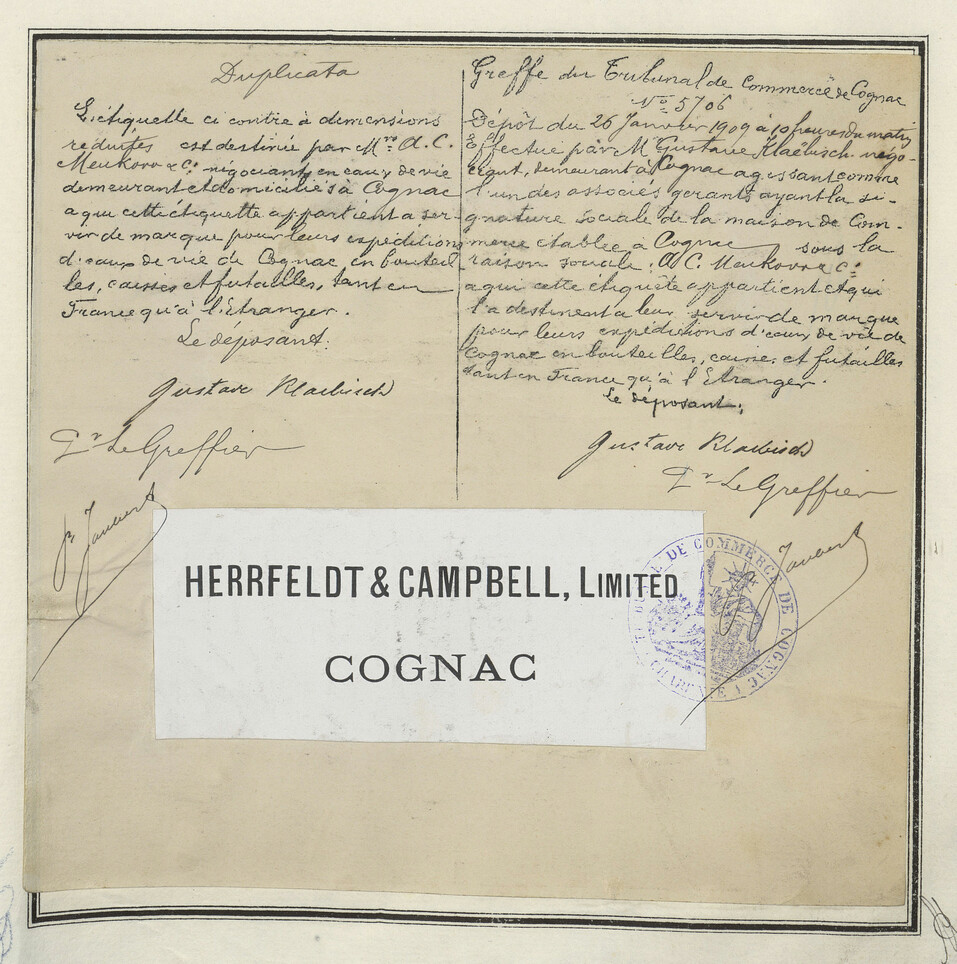 Duplicata
L'étiquette ci contre à dimensions
réduites est destinée par Mrs A. C.
Meukow & Cie négociants en eaux de vie
demeurant et domiciliés à Cognac
a qui cette étiquette appartient a ser-
vir de marque pour leurs expéditions
d'eaux de vie de Cognac en bouteil
les, caisses et futailles, tant en
France qu'à l'Etranger.
Le déposant:
Gustave Klaebisch
Pr Le Greffier
Jaubert
Greffe du Tribunal de Commerce de Cognac
No 5706
Dépôt du 26 Janvier 1909 à 10 heures du matin
Effectué par M Gustave Klaëbisch négo-
ciant, demeurant à Cognac agissant comme
l'un des associés gérants ayant la si-
gnature sociale de la maison de Com-
merce établie à Cognac sous la
raison sociale: A C. Meukow & Cie
a qui cette étiquète appartient et qui
l'a destinent a leur servir de marque
pour leurs expéditions d'eaux de vie de
Cognac en bouteilles, caisses et futailles
tant en France qu'à l'Etranger.
Le déposant:
Gustave Klaebisch
Pr Le Greffier
Jaubert
HERRFELDT & CAMPBELL, LIMITED.
COGNAC
DE COMMERCE DE COGNAC